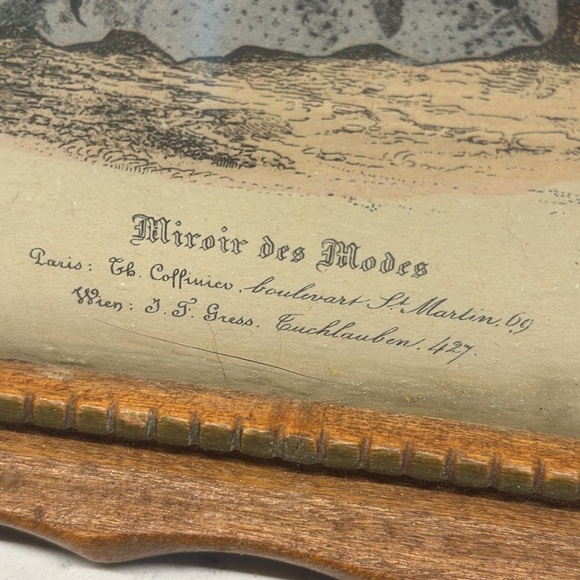 Miroir des Modes
Paris: Th. Coffinier. boulevart St. Martin, 69
Wien: J. F. Gress. Tuchlauben. 427.